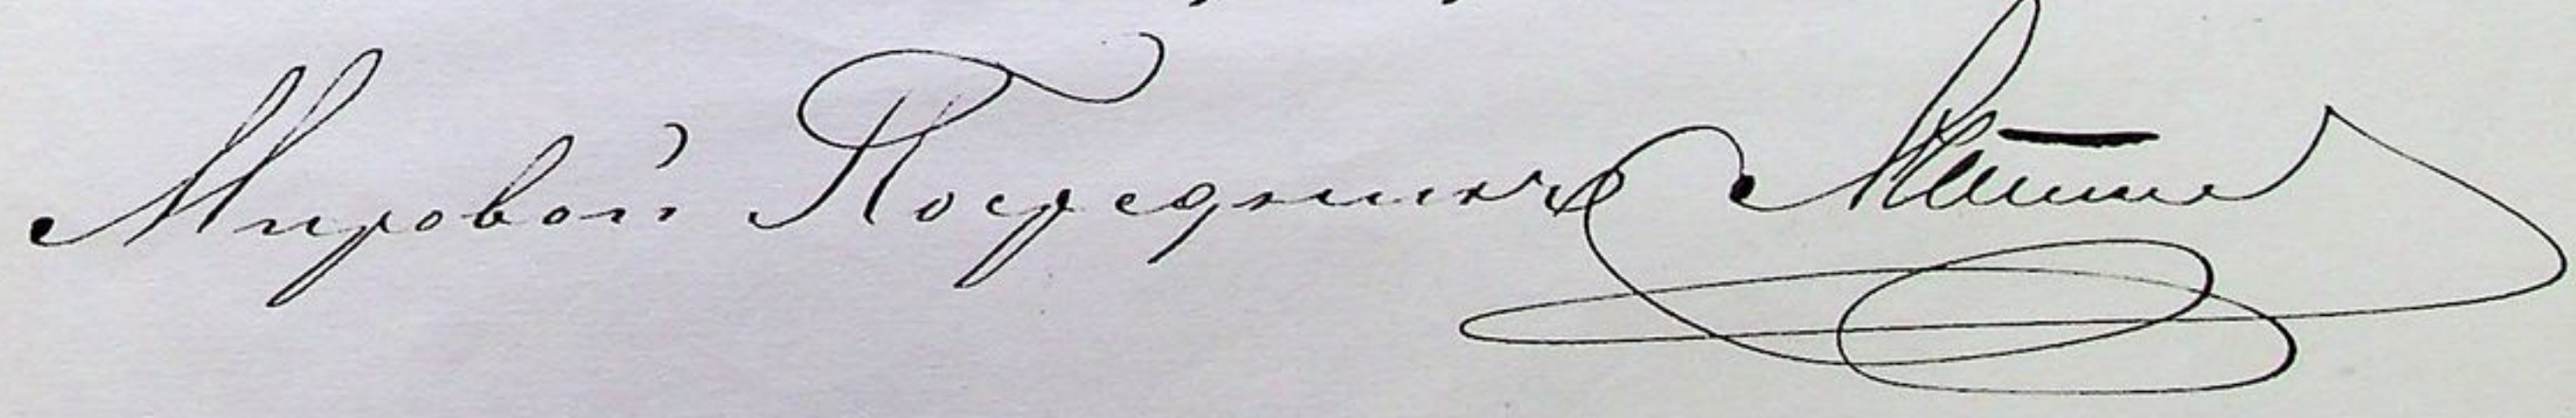 Мировой Посредникъ